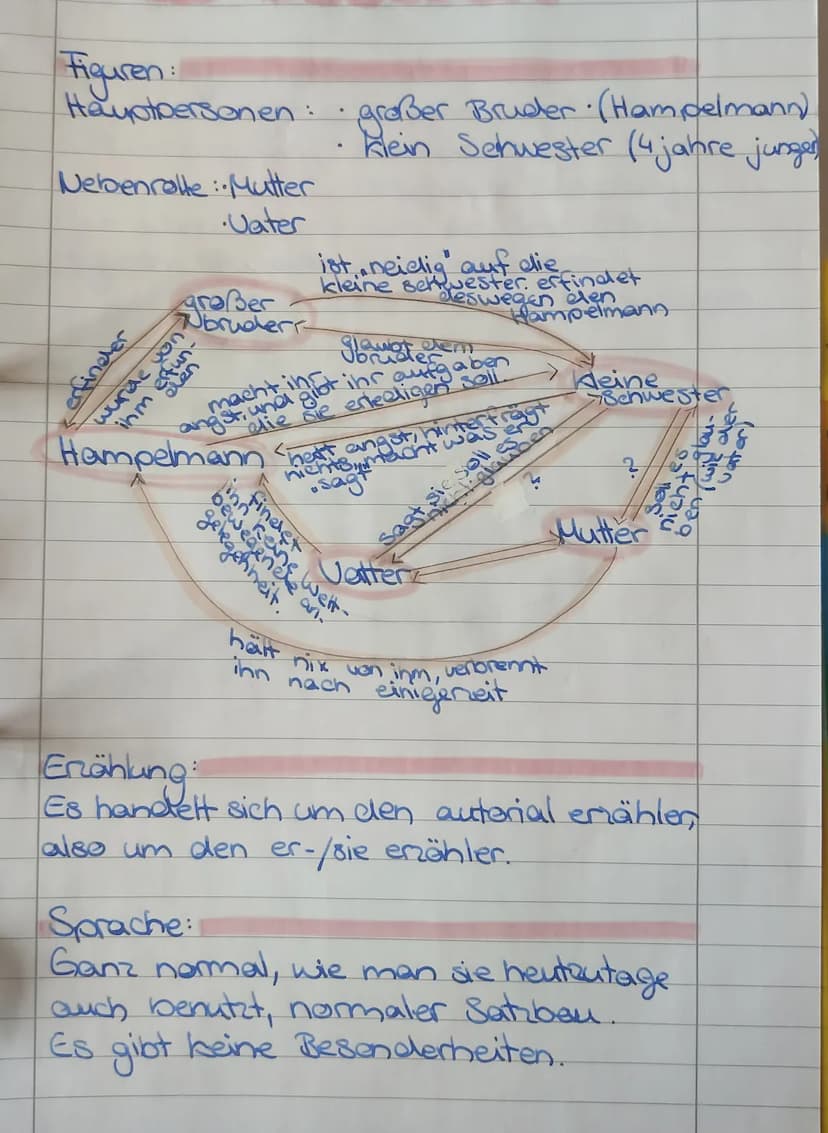 Figuren:
Hauptpersonen: · großer Bruder · (Hampelmann)
· klein Schwester (4 jahre junger)
Nebenrolle: · Mutter
· Vater
ist „neidig" auf die
kleine schwester. erfindet
deswegen den
Hampelmann
großer
bruder
erfindet
wurde von
ihm erfun-
den
glaubt dem
bruder
macht ihr
angst, und gibt ihr aufgaben
die sie erledigen soll.
kleine
schwester
Hampelmann
hatt angst, hinterfrägt
nichts, macht was er
„sagt"
sagt sie soll es
nicht glauben
?
?
soll es
nicht glau-
ben
Mutter
Vatter
ihn findet
keine
an.
hält nix von ihm, verbrennt
ihn nach einigerzeit
Erzählung:
Es handelt sich um den autorial erzähler,
also um den er-/sie erzähler.
Sprache:
Ganz normal, wie man sie heutzutage
auch benutzt, normaler Satzbau.
Es gibt keine Besonderheiten.